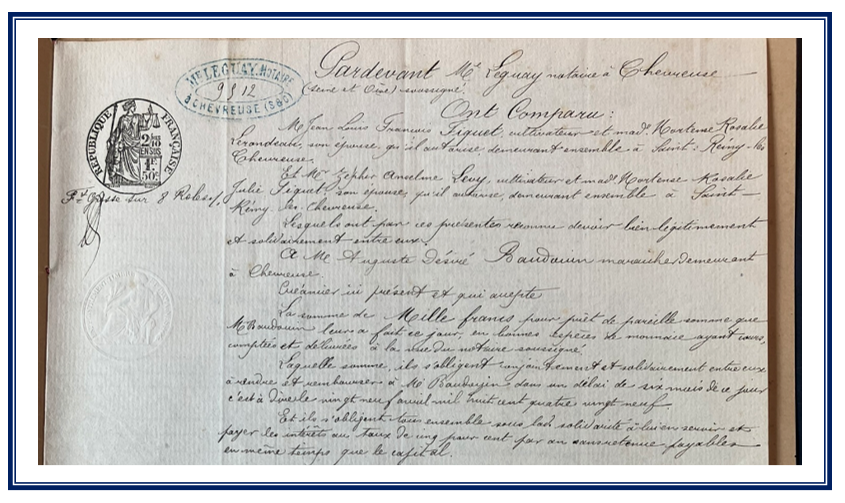 Me LEGUAY, NOTAIRE
9512
à CHEVREUSE (S&O)
RÉPUBLIQUE FRANÇAISE
2/10
EN SUS
1F.
50c.
Pardevant Me Leguay notaire à Chevreuse
(Seine et Oise) soussigné.
Ont Comparu :
Mr Jean Louis François Fiquet, cultivateur et made Hortense Rosalie
son épouse, qu'il autorise demeurant ensemble à Saint-Remy-les
Chevreuse.
Et Mr Zéphir Anselme Levy, cultivateur et made Hortense Rosalie
Julie Fiquet son épouse, qu'il autorise, demeurant ensemble à Saint-
Rémy-les-Chevreuse.
Gosse sur 8 Roles
Lesquels ont par ces présentes reconnu devoir bien légitimement
et solidairement entre eux.
A Mr Auguste Désiré Baudouin maraicher demeurant
à Chevreuse.
Créancier ici présent et qui accepte
La somme de Mille francs pour prêt de pareille somme que
Mr Baudouin leur a fait ce jour, en bonnes espèces de monnaie ayant cours,
comptées et délivrées à la vue du notaire soussigné
Laquelle somme, ils s'obligent conjointement et solidairement entre eux
à rendre et rembourser à Mr Baudouin dans un délai de six mois de ce jour
c'est à dire le vingt neuf avril mil huit cent quatre vingt neuf
Et ils s'obligent tous ensemble sous ladite solidarité à lui en servir et
payer les intérêts au taux de cinq pour cent par an sans retenue payables
en même temps que le capital.